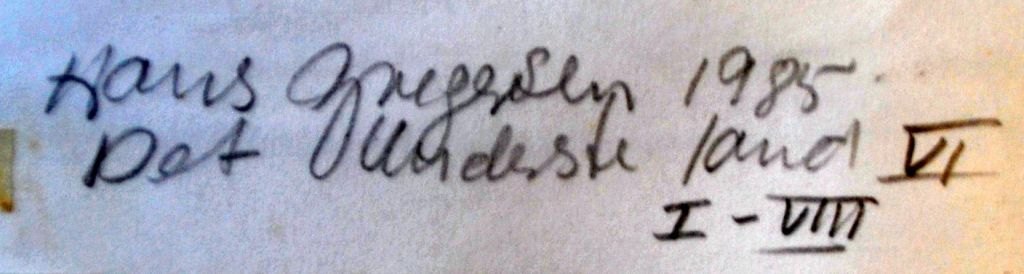 Hans Gregersen 1985
Det Underste land VI
I - VIII